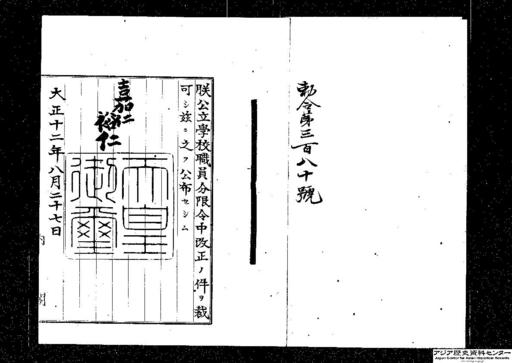 勅令第三百八十號
朕公立學校職員分限令中改正ノ件ヲ裁
可シ玆ニ之ヲ公布セシム
嘉仁
裕仁
天皇
御璽
大正十二年八月二十七日
内閣
アジア歴史資料センター
Japan Center for Asian Historical Records